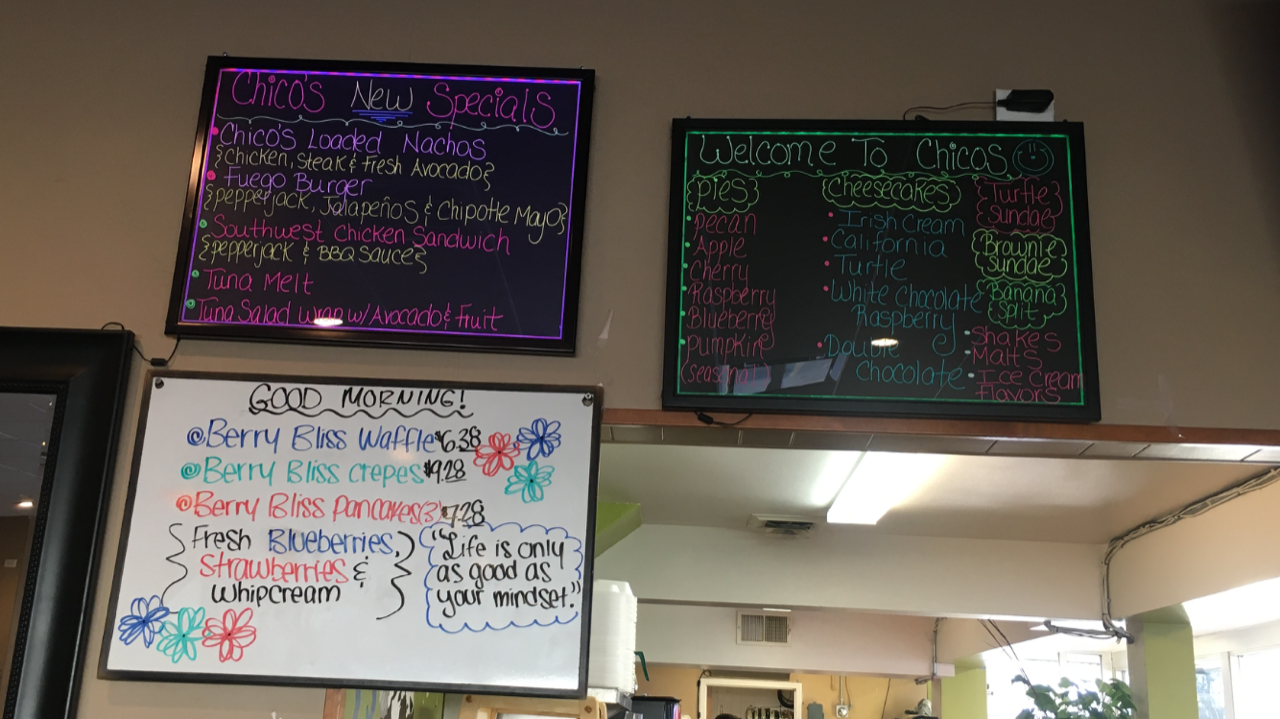 Chico's New Specials
Chico's Loaded Nachos
{Chicken, steak & Fresh Avocado}
Fuego Burger
{pepperjack, Jalapeños & Chipotle Mayo}
Southwest Chicken Sandwich
{pepperjack & BBQ Sauce}
Tuna Melt
Tuna Salad wrap w/ Avocado & Fruit
Welcome To Chicos
Pies
Pecan
Apple
Cherry
Raspberry
Blueberry
Pumpkin
(seasonal)
Cheesecakes
Irish Cream
California
Turtle
White Chocolate
Raspberry
Double
Chocolate
Turtle
Sundae
Brownie
Sundae
Banana
Split
Shakes
Malts
Ice Cream
Flavors
GOOD MORNING!
Berry Bliss Waffle $6.38
Berry Bliss Crepes $9.28
Berry Bliss Pancakes(3) $7.28
{Fresh Blueberries,
Strawberries &
Whipcream}
"Life is only
as good as
your mindset."